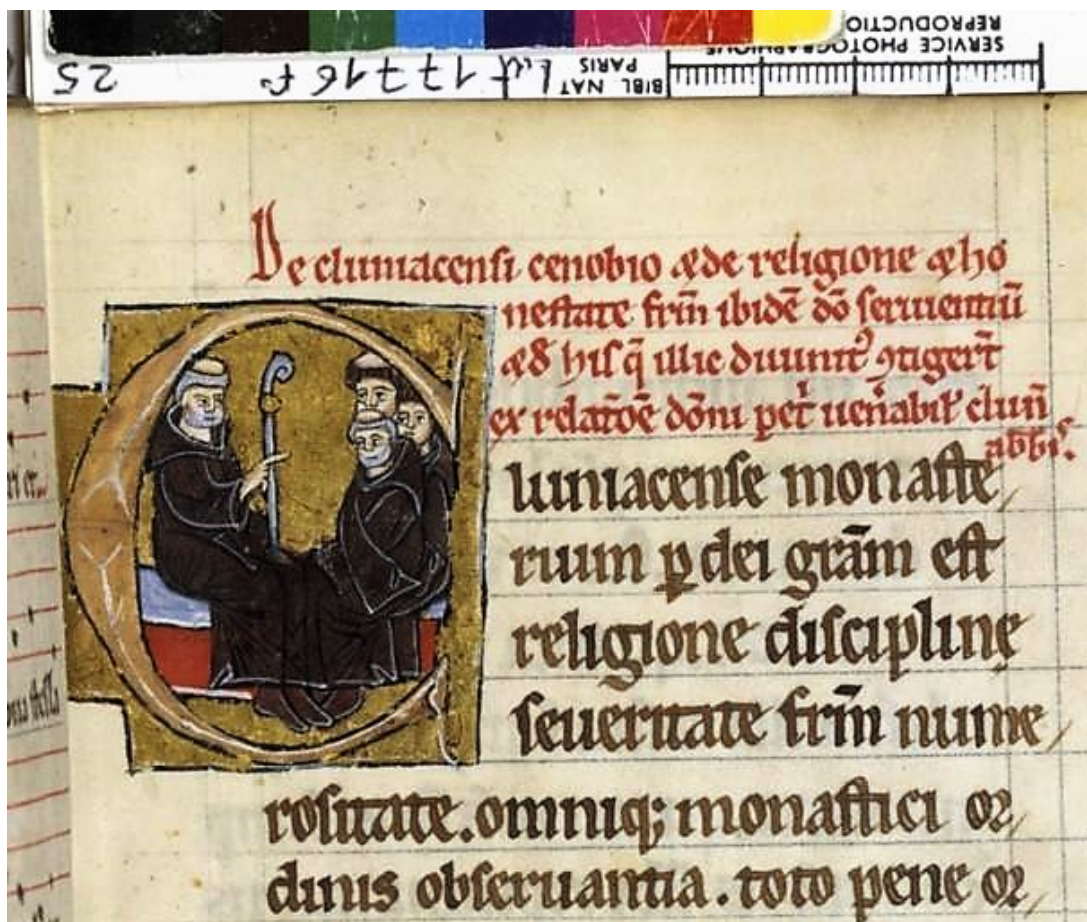 REPRODUCTIO
SERVICE PHOTOGRAPHIQUE
BIBL NAT
PARIS
Lat 17716 f° 25
De cluniacensi cenobio & de religione & ho
nestate frm̄ ibidē dō seruientiū
& de his q̄ illic diuinit᾽ ꝯtigerт̄
ex relatōē dōni pet̄ uenabil᾽ cluñ
abb̄is.
Cluniacense monaste
rium ꝑ dei grām est
religione disciplinę
seueritate frm̄ nume
rositate. omniq; monastici or
dinis obseruantia. toto pene or